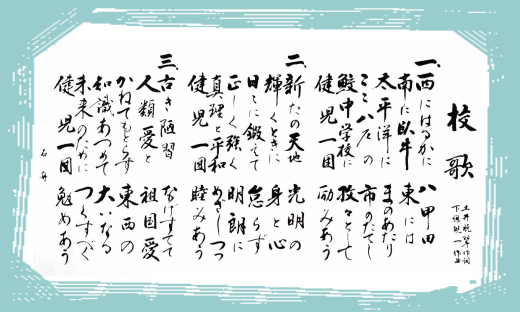 校歌
土井晩翠作詞
下總皖一作曲
一、西にはるかに 八甲田
南に臥牛 東には
太平洋に まのあたり
こゝ八戸の 市のたてし
鮫中学校に 孜々として
健児一団 励みあう
二、新たの天地 光明の
輝くときに 身と心
日々に鍛えて 怠らず
正しく強く 明朗に
真理と平和 めざしつつ
健児一団 睦みあう
三、古き陋習 なげすてて
人類愛と 祖国愛
かねてもとらず 東西の
知識あつめて 大いなる
未来のために つくすべく
健児一団 勉めあう